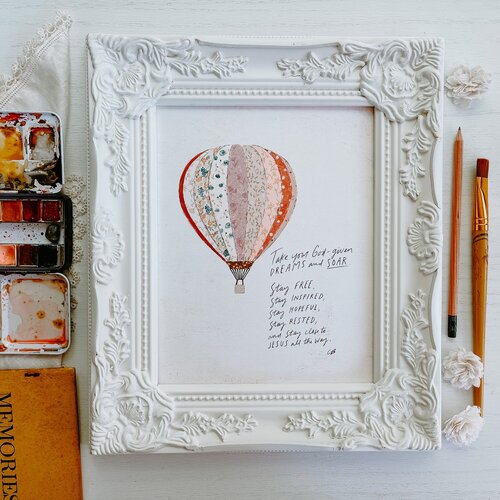 Take your God-given
DREAMS and SOAR
Stay FREE,
Stay INSPIRED,
Stay HOPEFUL,
Stay RESTED,
and stay close to
JESUS all the way.
MEMORIES